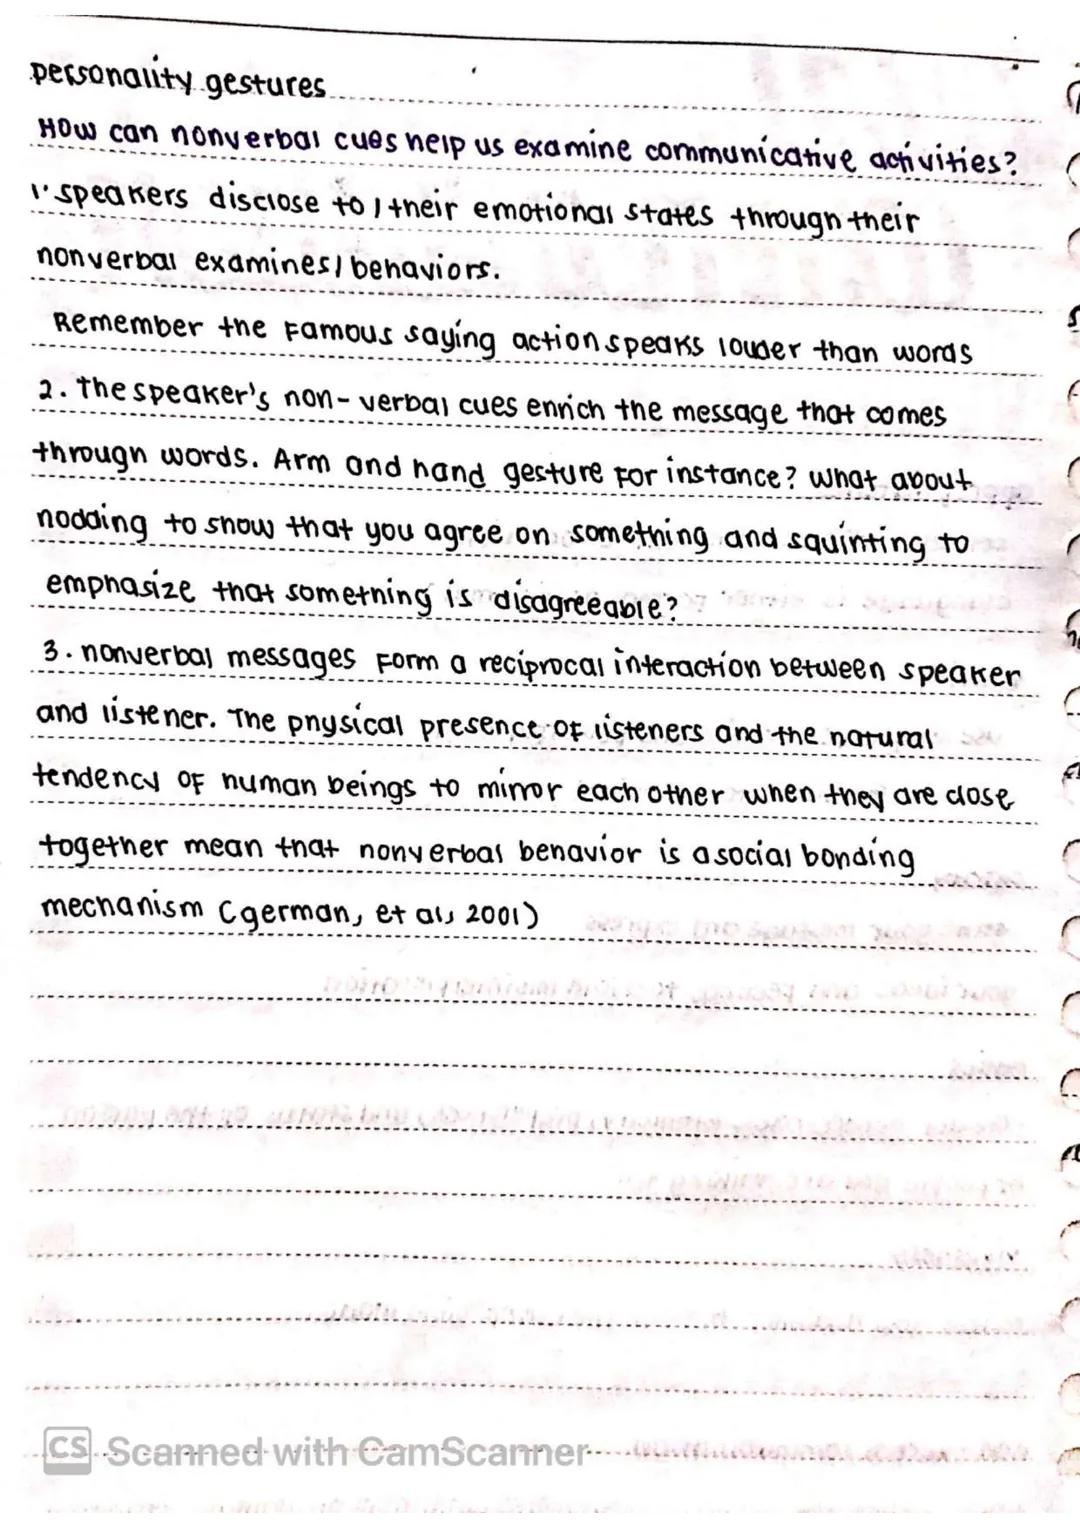 personality gestures
How can nonverbal cues help us examine communicative activities?
1. speakers disclose to / their emotional states through their
nonverbal examines/behaviors.
Remember the famous saying action speaks louder than words
2. the speaker's non-verbal cues enrich the message that comes
through words. Arm and hand gesture for instance? what about
nodding to show that you agree on something and squinting to
emphasize that something is disagreeable?
3. nonverbal messages form a reciprocal interaction between speaker
and listener. The physical presence of listeners and the natural
tendency of human beings to mirror each other when they are close
together mean that nonverbal behavior is a social bonding
mechanism (german, et al, 2001)
CS Scanned with CamScanner